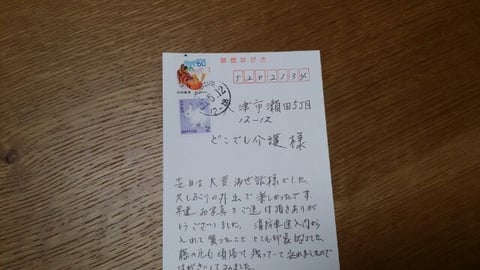 郵便はがき
50
5202134
5.12
津市瀬田5丁目
12-12
2
NIPPON
どこでも介護様
先日は大変お世話様でした。
久しぶりの外出で楽しかったです。
早速お写真をご送付頂きありが
とうございました。
入れて貰ったこと とても印象的でした。
藤の花も頑張って残っていて
はがきにしてみました。